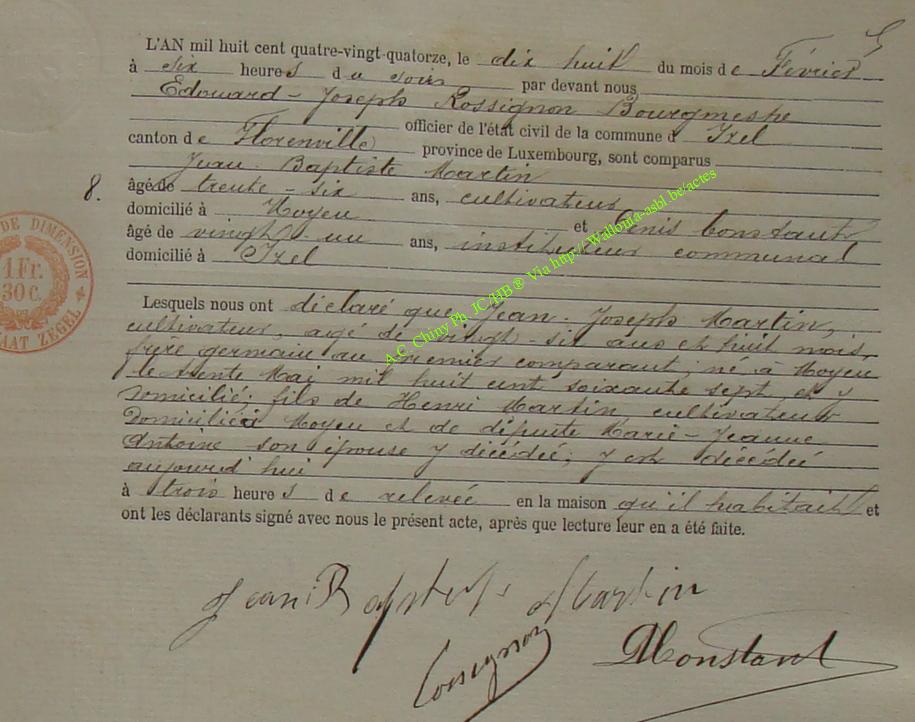 L'AN mil huit cent quatre-vingt-quatorze, le dix huit du mois de Février
à six heures du soir par devant nous
Edouard - Joseph Rossignon Bourgmestre
officier de l'état civil de la commune d'Izel
canton de Florenville province de Luxembourg, sont comparus
Jean Baptiste Martin
8. âgé de trente - six ans, cultivateur
domicilié à Moyen et Denis Constant
âgé de vingt un ans, instituteur communal
domicilié à Izel
Lesquels nous ont déclaré que Jean - Joseph Martin,
cultivateur, agé de vingt - six ans et huit mois,
frère germain au premier comparant, né à Moyen
le trente Mai mil huit cent soixante sept, et y
domicilié; fils de Henri Martin, cultivateur
domicilié à Moyen et de défunte Marie - Jeanne
Antoine son épouse y décédée; y est décédé
aujourd'hui
à trois heures de relevée en la maison qu'il habitait et
ont les déclarants signé avec nous le présent acte, après que lecture leur en a été faite.
Jean Baptiste Martin
Rossignon
DConstant
DE DIMENSION
1Fr.
30C.
ZEGEL
A.C. Chiny Ph. JC/HB® Via http://Wallonia-asbl.be/actes